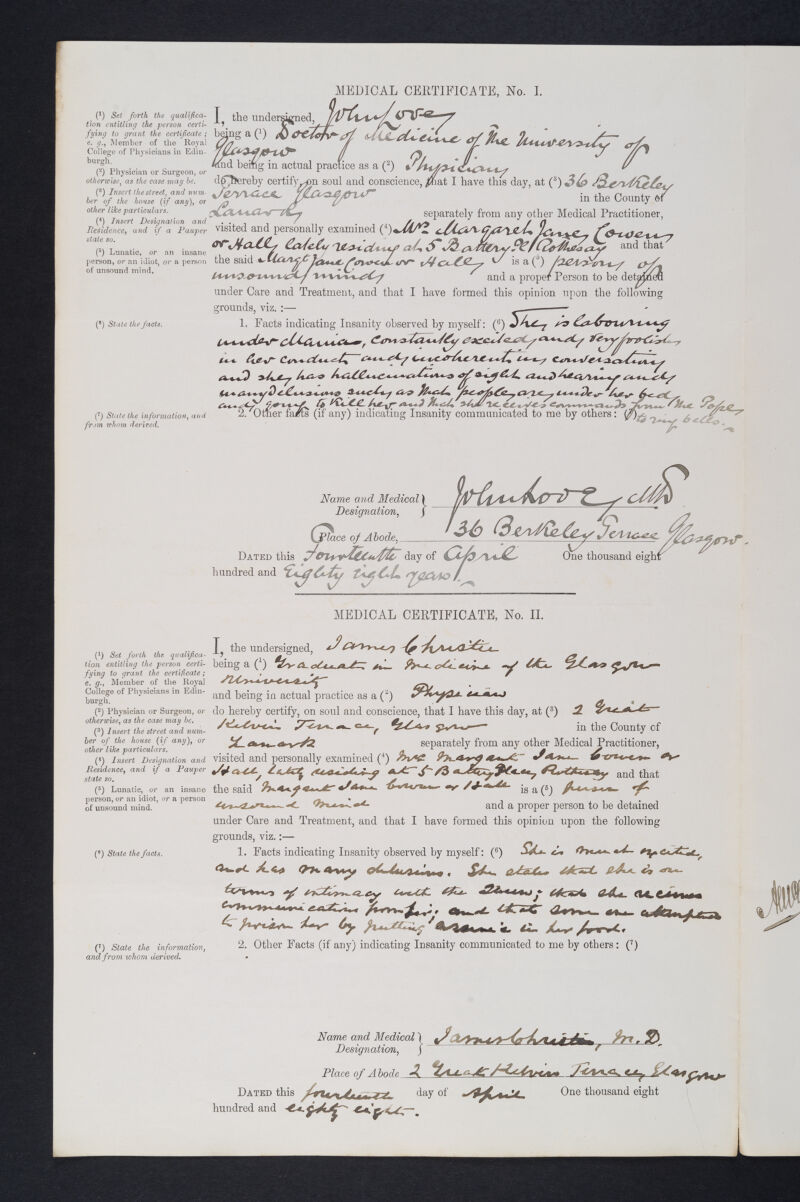 MEDICAL CERTIFICATE, No. I.
(¹) Set forth the qualifica-
tion entitling the person certi-
fying to grant the certificate;
e. g., Member of the Royal
College of Physicians in Edin-
burgh.
(²) Physician or Surgeon, or
otherwise, as the case may be.
(³) Insert the street, and num-
ber of the house (if any), or
other like particulars.
(⁴) Insert Designation and
Residence, and if a Pauper
state so.
(⁵) Lunatic, or an insane
person, or an idiot, or a person
of unsound mind.
I, the undersigned, John Love
being a (¹) Doctor of Medicine of the University of
Glasgow
and being in actual practice as a (²) Physician
do hereby certify, on soul and conscience, that I have this day, at (³) 36 Berkeley
Terrace Glasgow in the County of
Lanark separately from any other Medical Practitioner,
visited and personally examined (⁴) Mrs Margaret Jane Cowen
or Hall lately residing at 5 Battery Pl Rothesay and that
the said Margt Jane Cowen or Hall is a (⁵) person of
unsound mind and a proper Person to be detained
under Care and Treatment, and that I have formed this opinion upon the following
grounds, viz. :—
(⁶) State the facts.
1. Facts indicating Insanity observed by myself: (⁶) She is labouring
under Mania, constantly excited, and very foolish
in her conduct and incoherent in conversation
and she has hallucinations of sight and hearing and
many delusions such as that people are under her bed
and going to kill her and that she receives commands from the Pope
to ring bells.
(⁷) State the information, and
from whom derived.
2. Other facts (if any) indicating Insanity communicated to me by others: (⁷)
Name and Medical Designation, John Love, MD
Place of Abode, 36 Berkeley Terrace Glasgow.
DATED this Fourteenth day of April One thousand eight
hundred and Eighty eight years
MEDICAL CERTIFICATE, No. II.
(¹) Set forth the qualifica-
tion entitling the person certi-
fying to grant the certificate;
e. g., Member of the Royal
College of Physicians in Edin-
burgh.
(²) Physician or Surgeon, or
otherwise, as the case may be.
(³) Insert the street and num-
ber of the house (if any), or
other like particulars.
(⁴) Insert Designation and
Residence, and if a Pauper
state so.
(⁵) Lunatic, or an insane
person, or an idiot, or a person
of unsound mind.
I, the undersigned, James Christie
being a (¹) Graduate in Medicine of the Glasgow
University
and being in actual practice as a (²) Physician
do hereby certify, on soul and conscience, that I have this day, at (³) 2 Great
Kelvin Terrace, Glasgow in the County of
Lanark separately from any other Medical Practitioner,
visited and personally examined (⁴) Mrs Margaret Jane Cowen or
Hall, lately residing at 5 Battery Place, Rothesay and that
the said Margaret Jane Cowen or Hall is a (⁵) person of
unsound mind and a proper person to be detained
under Care and Treatment, and that I have formed this opinion upon the following
grounds, viz. :—
(⁶) State the facts.
1. Facts indicating Insanity observed by myself: (⁶) She is much excited,
and has many delusions. She states that she is on
terms of intimacy with the Queen; that she receives
communications from her; and that some one attempted
to poison her by putting arsenic in her food.
(⁷) State the information,
and from whom derived.
2. Other Facts (if any) indicating Insanity communicated to me by others: (⁷)
Name and Medical Designation, James Christie, M.D.
Place of Abode 2 Great Kelvin Terrace, Glasgow
DATED this fourteenth day of April One thousand eight
hundred and eighty eight.